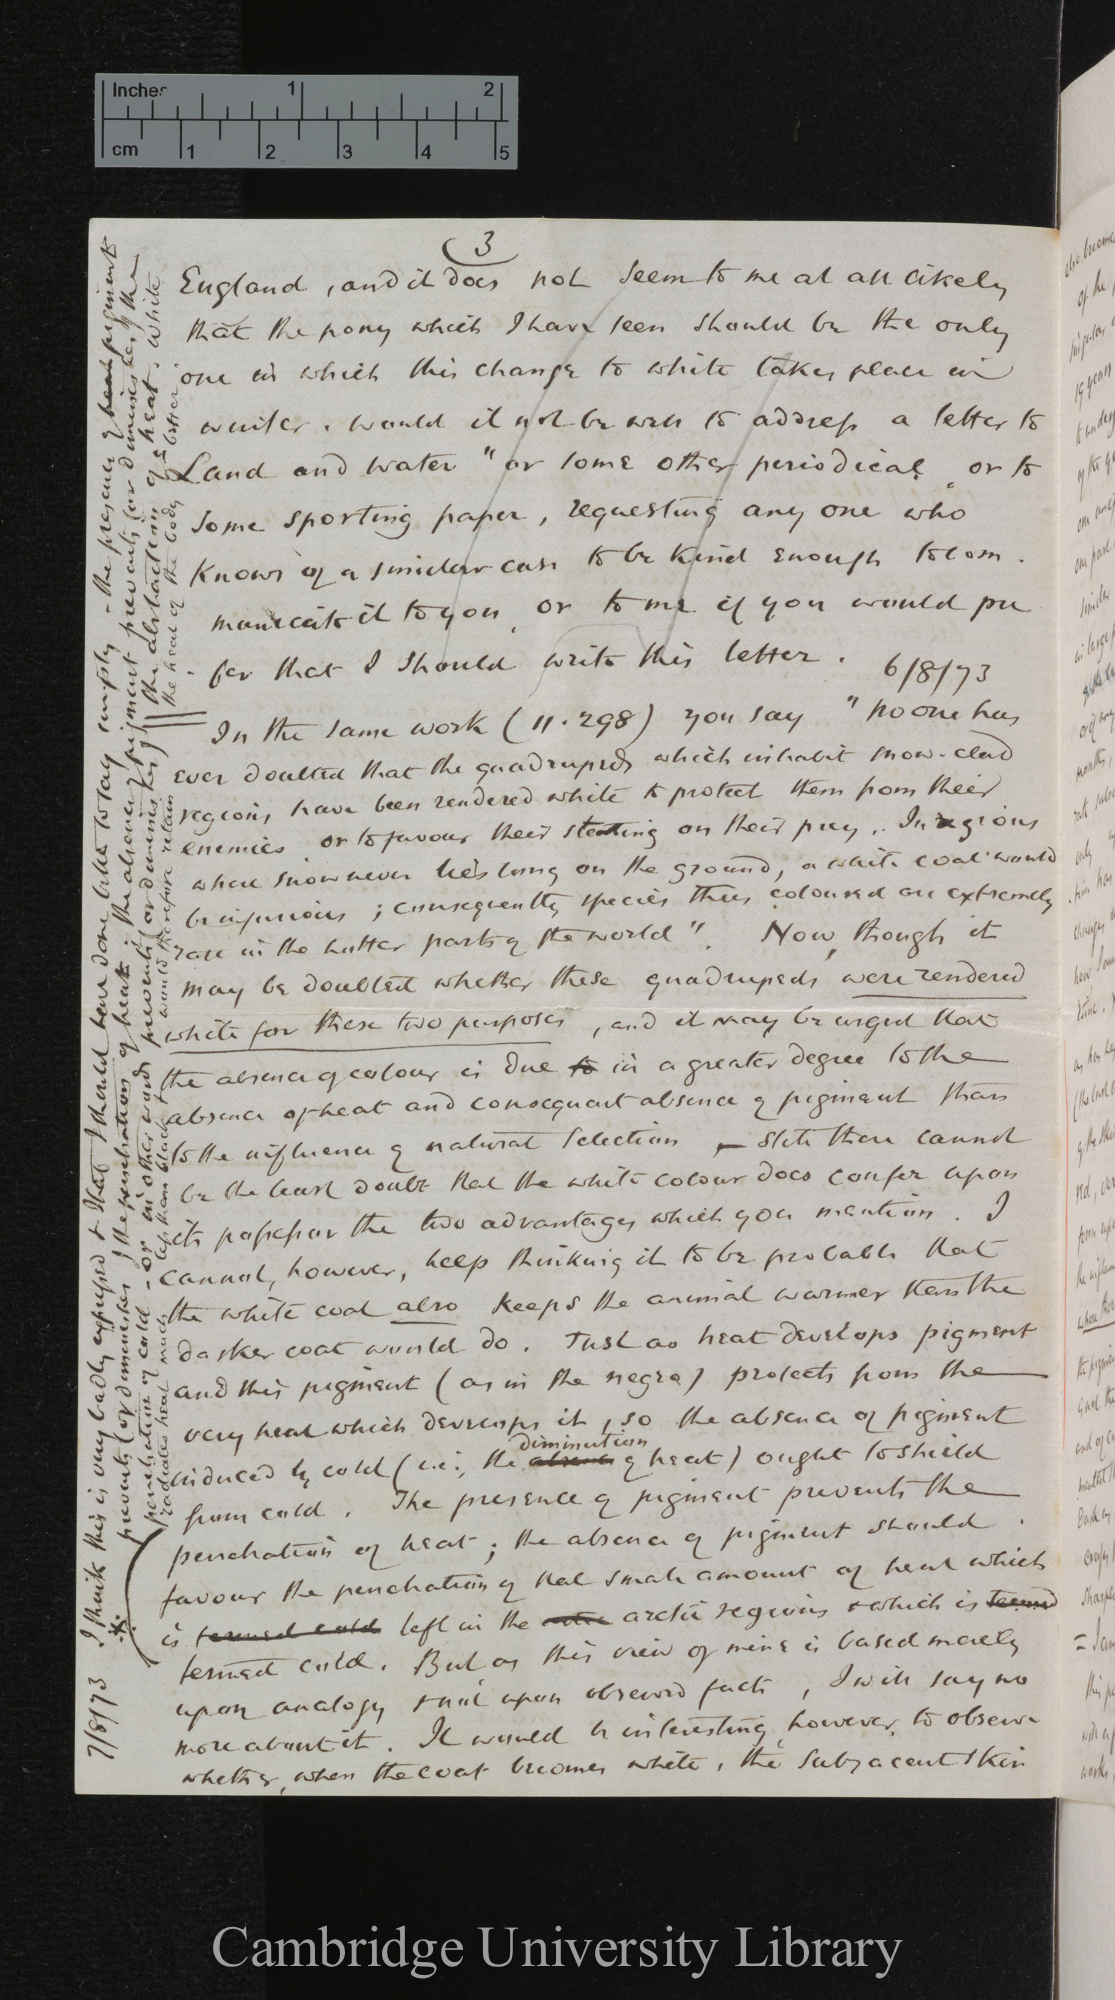 Inches 1 2
cm 1 2 3 4 5
3
England, and it does not seem to me at all likely
that the pony which I have seen should be the only
one in which this change to white takes place in
winter. Would it not be well to address a letter to
Land and Water" or some other periodical, or to
some sporting paper, requesting any one who
knows of a similar case to be kind enough to com-
municate it to you, or to me if you would pre
fer that I should write this letter. 6/8/73
In the same work (11.298) you say "no one has
ever doubted that the quadrupeds which inhabit snow-clad
regions have been rendered white to protect them from their
enemies or to favour their stealing on their prey. In regions
where snow never lies long on the ground, a white coat would
be injurious; consequently species thus coloured are extremely
rare in the hotter parts of the world". Now, though it
may be doubted whether these quadrupeds were rendered
white for these two purposes, and it may be urged that
the absence of colour is due to in a greater degree to the
absence of heat and consequent absence of pigment than
to the influence of natural selection, — still there cannot
be the least doubt that the white colour does confer upon
its possessor the two advantages which you mention. I
cannot, however, help thinking it to be probable that
the white coat also keeps the animal warmer than the
darker coat would do. Just as heat develops pigment
and this pigment (as in the negro) protects from the
very heat which develops it, so the absence of pigment
diminution
induced by cold (i.e., the absence of heat) ought to shield
from cold. The presence of pigment prevents the
penetration of heat; the absence of pigment should
favour the penetration of that small amount of heat which
is termed cold left in the arctic regions & which is termed
termed cold. But as this view of mine is based merely
upon analogy & not upon observed facts, I will say no
more about it. It would be interesting, however, to observe
whether, when the coat becomes white, the subjacent skin
7/8/73 I think this is very badly expressed & that I should have done better to say simply - the presence of heat pigment
* prevents (or diminishes) the penetration of heat; the absence of pigment prevents (or diminishes) the
penetration of cold - or in other words prevents (or diminishes) the abstraction of heat. White
radiates heat much less than black & would therefore retain the heat of the body better.
Cambridge University Library